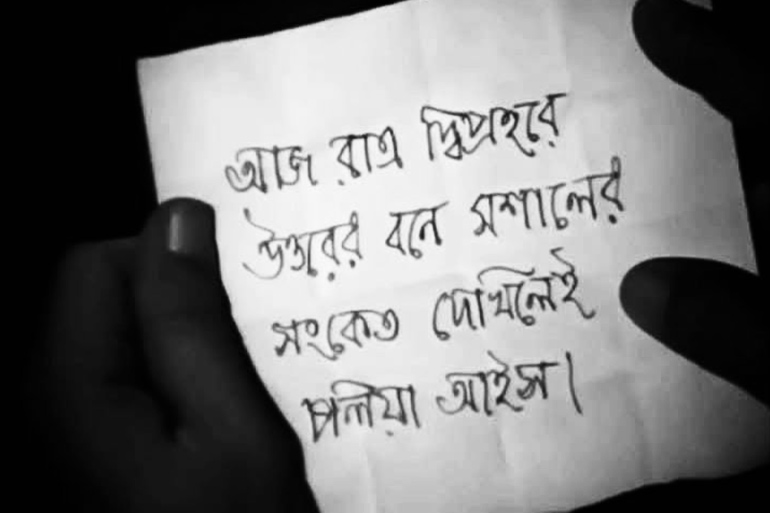 আজ রাত্র দ্বিপ্রহরে
উত্তরের বনে মশালের
সংকেত দেখিলেই
চলিয়া আইস।